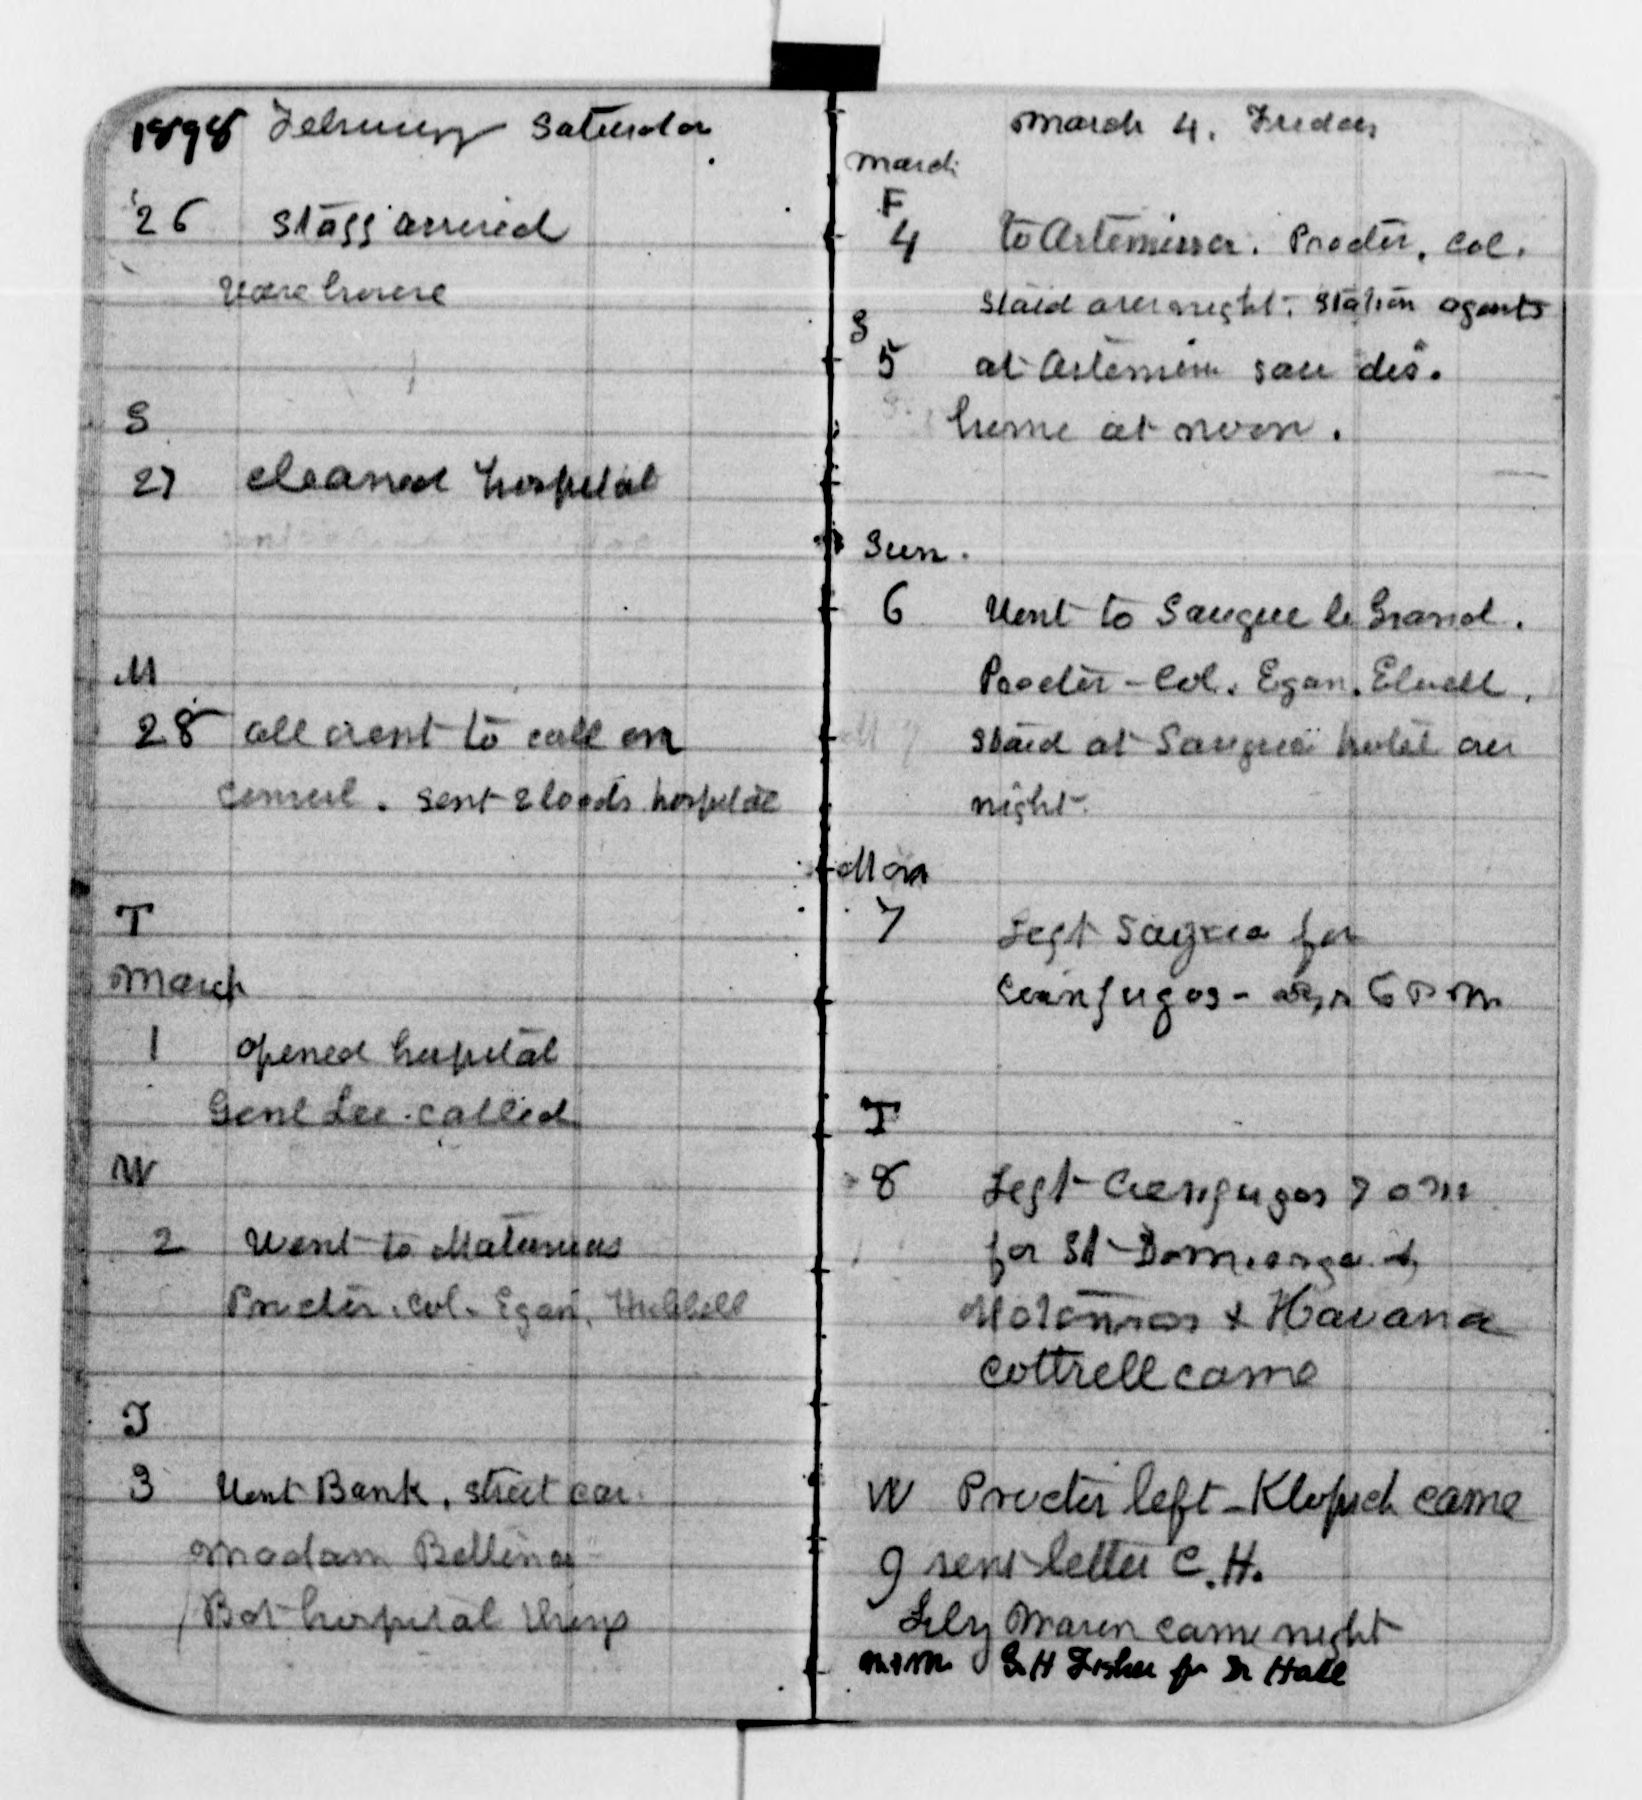 1898 February Saturda
26 Staff arrived
Ware house
S
27 cleaned hospital
M
28 all went to call on
Consul. Sent 2 loads hospital
T
March
1 opened hospital
Genl Lee called
W
2 Went to Matanzas
Procter. Col. Egan. Hubbell
T
3 Went Bank, street car
Madam Bellina
Bot hospital things
March 4. Friday
March
F
4 to Artemissa. Procter, Col.
Staid over night. Station agents
S
5 at Artemisa saw dis.
home at noon.
Sun.
6 Went to Saugua le Grand.
Procter - Col. Egan. Elwell.
Staid at Saugua hotel over
night.
Mon
7 Left Sagua for
6 P M
T
8 Left Cienfugos 7 a m
for St Domingo &
Matanzas & Havana
Cottrell came
W Procter left - Klopsch came
9 sent letter C. H.
came night
H Fisher for Dr Hall